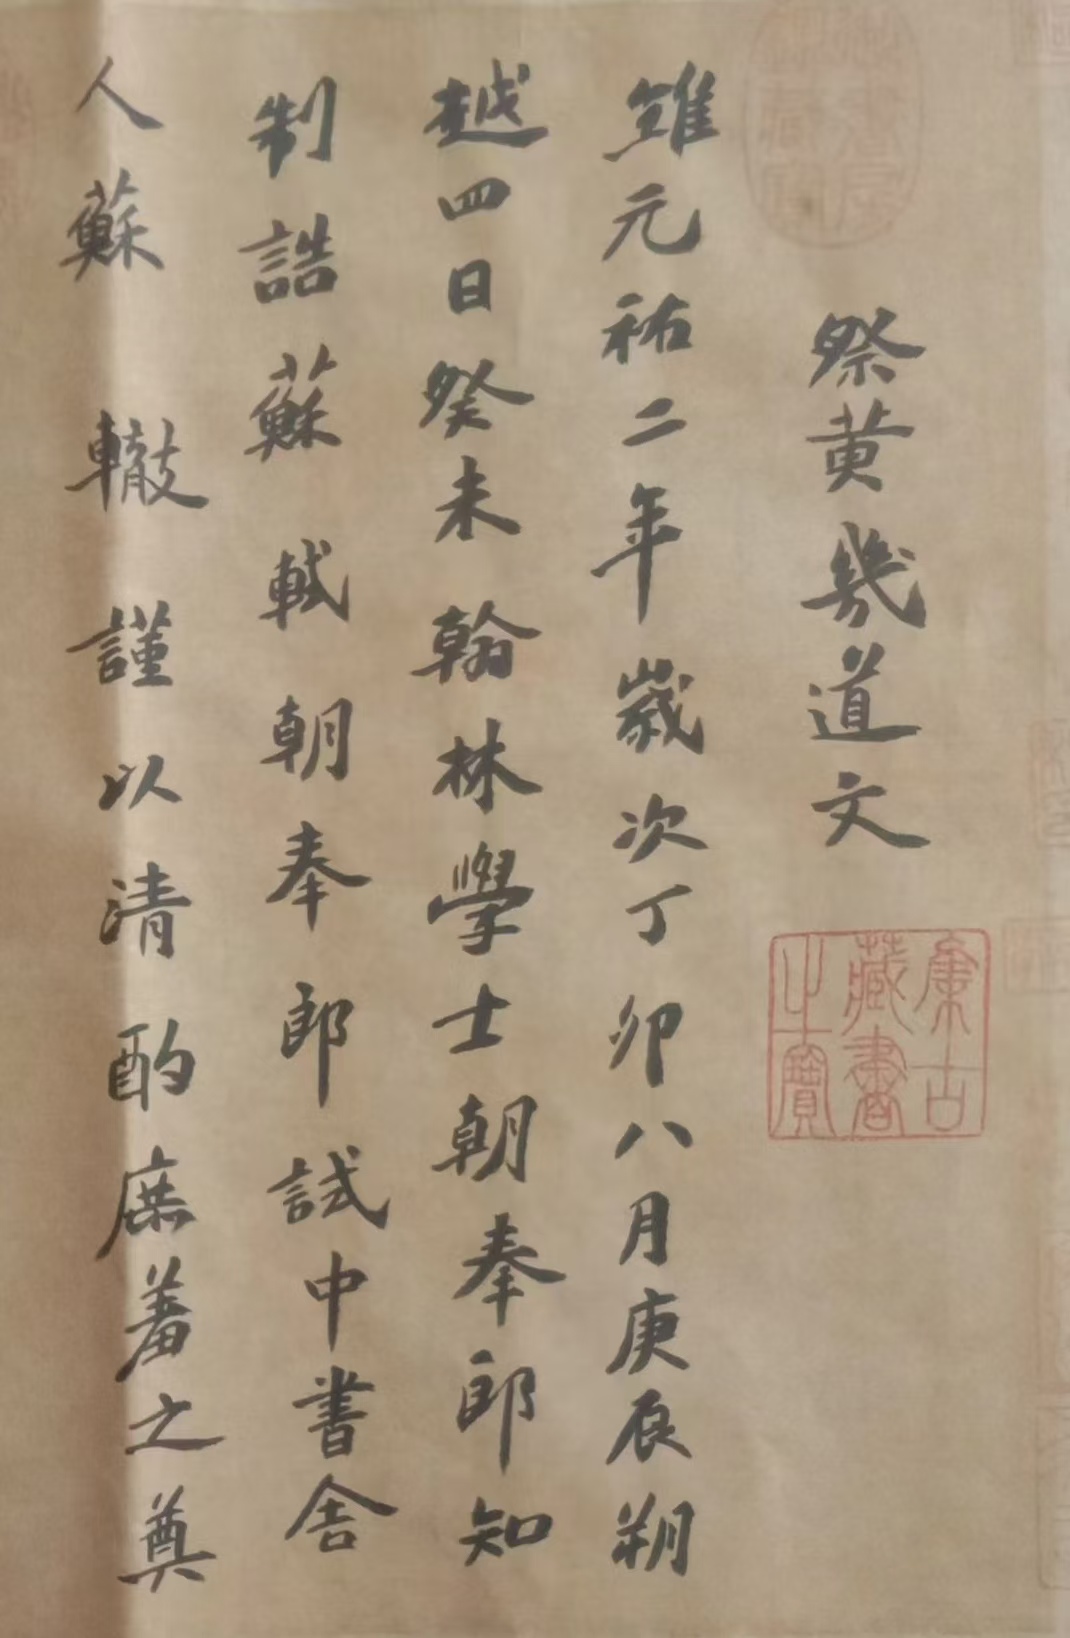 祭黄幾道文
維元祐二年歲次丁卯八月庚辰朔
越四日癸未翰林學士朝奉郎知
制誥蘇軾朝奉郎試中書舍
人蘇轍謹以清酌庶羞之奠
廉古
藏書
之寶